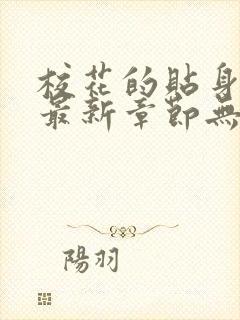 校花的貼身
最新章節無
陽羽